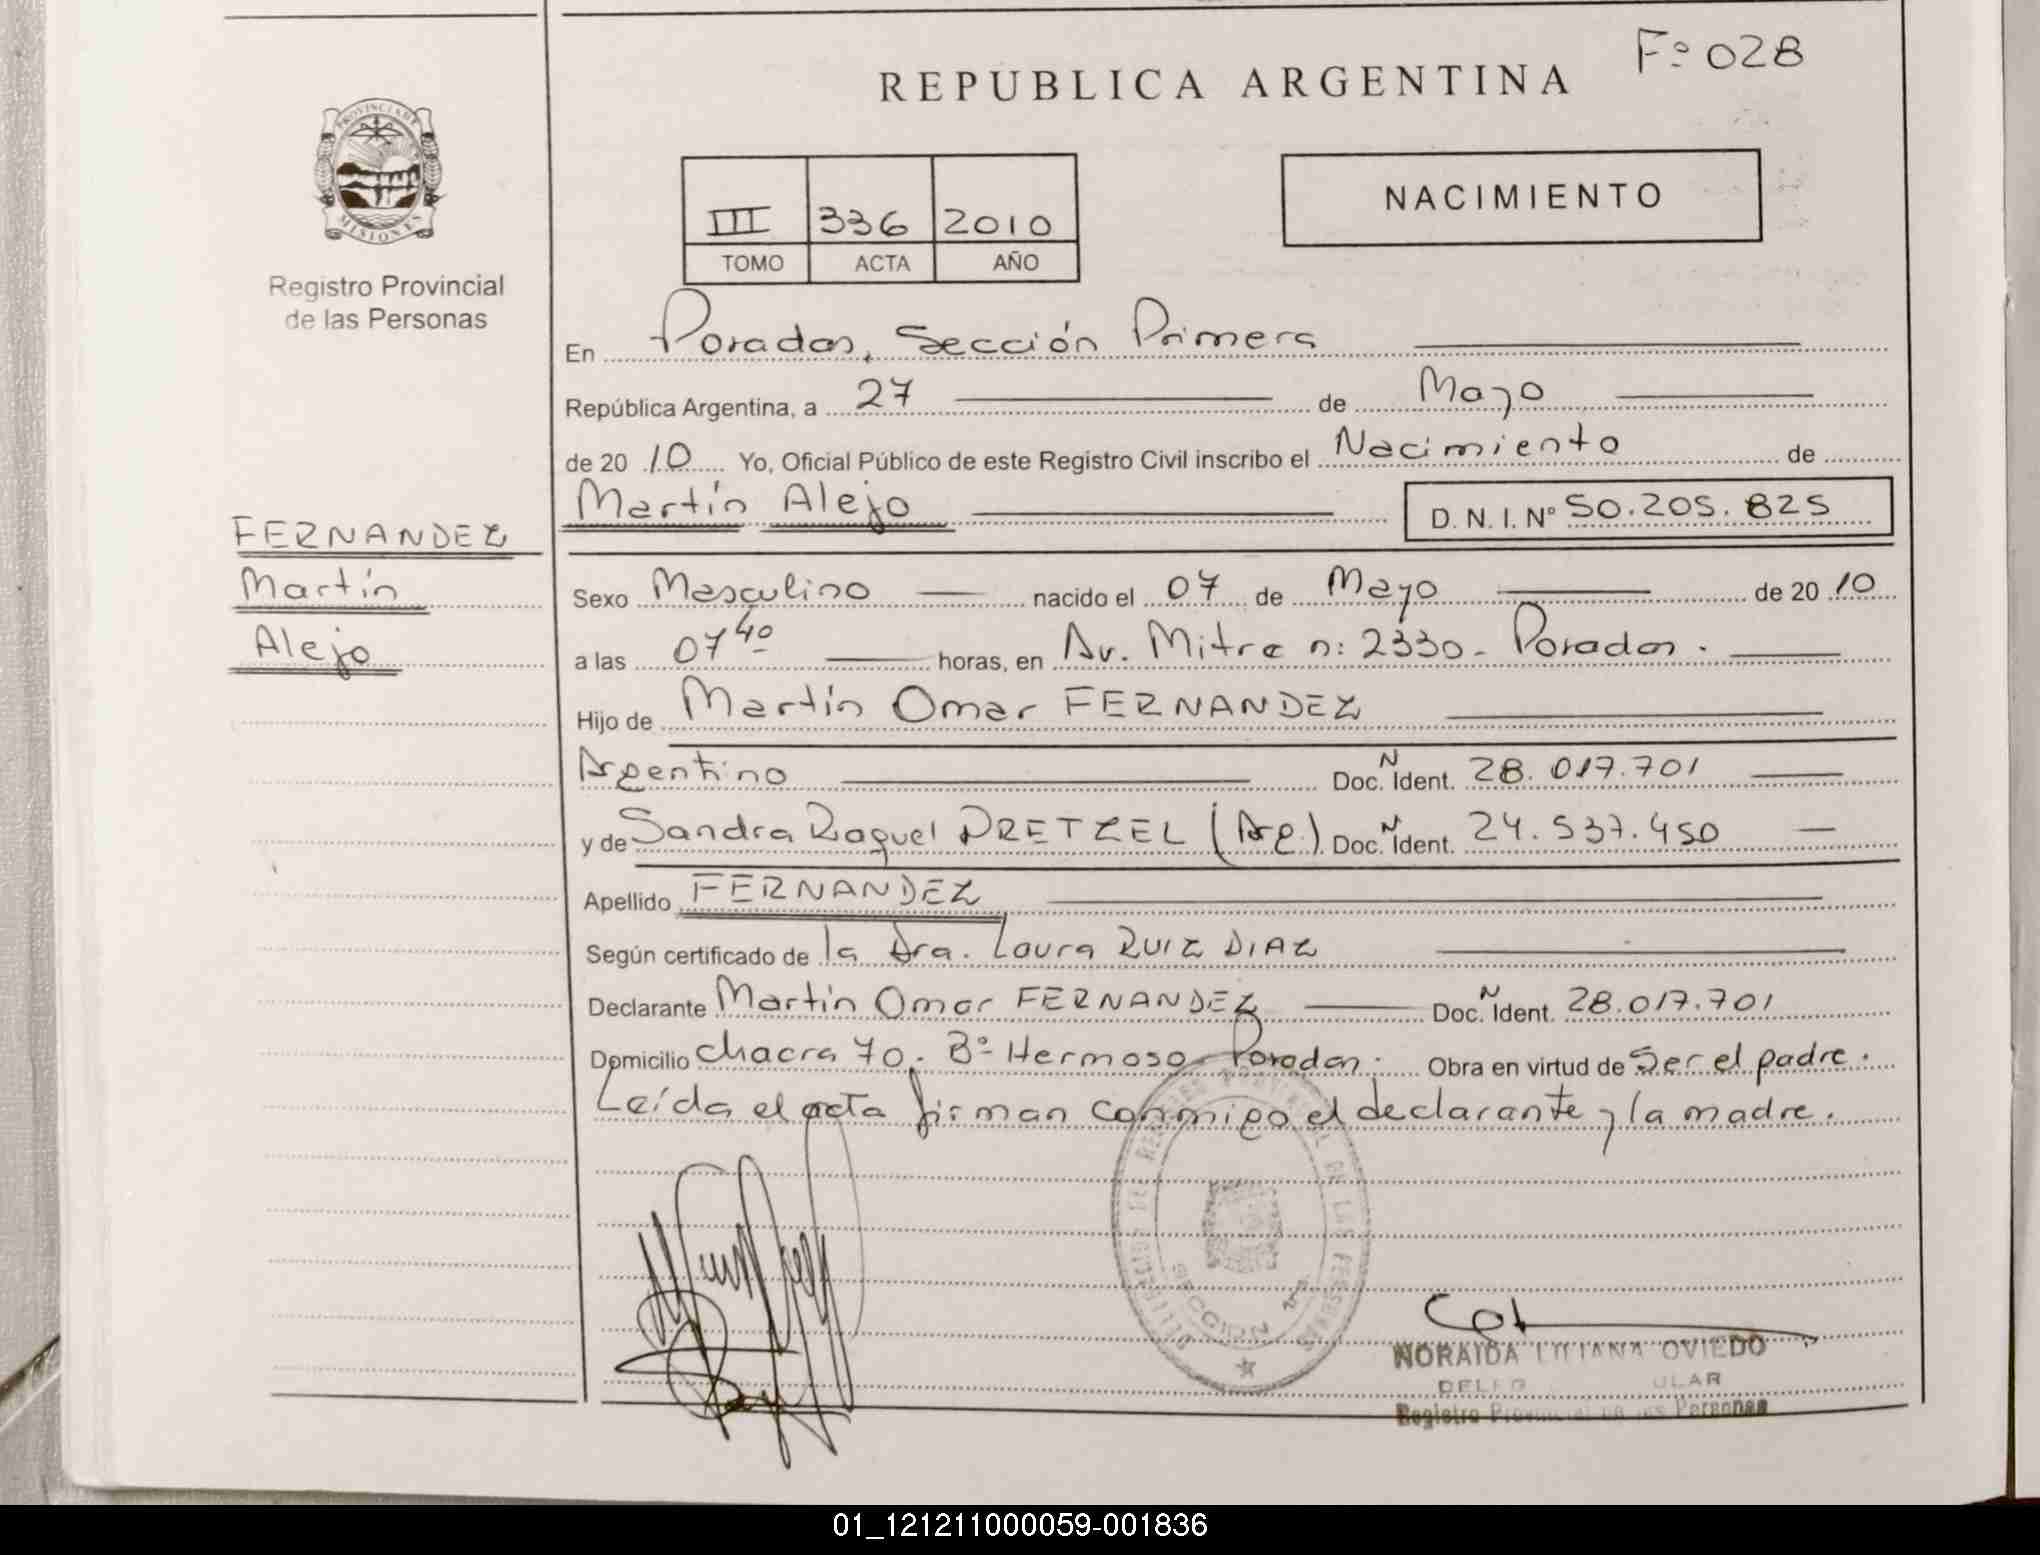 F.º 028
REPUBLICA ARGENTINA
PROVINCIA DE
MISIONES
III 336 2010
TOMO ACTA AÑO
NACIMIENTO
Registro Provincial
de las Personas
En Posadas, Sección Primera
República Argentina, a 27 de Mayo
de 2010 Yo, Oficial Público de este Registro Civil inscribo el Nacimiento de
Martín Alejo D. N. I. Nº 50.205.825
FERNANDEZ
Martín
Alejo
Sexo Masculino nacido el 07 de Mayo de 2010
a las 07 40 horas, en Av. Mitre n: 2330 - Posadas.
Hijo de Martín Omar FERNANDEZ
Argentino Doc. N Ident. 28.017.701
y de Sandra Raquel PRETZEL (Arg.) Doc. N Ident. 24.537.450
Apellido FERNANDEZ
Según certificado de la Dra. Laura RUIZ DIAZ
Declarante Martín Omar FERNANDEZ Doc. N Ident. 28.017.701
Domicilio chacra 70. Bº Hermoso - Posadas. Obra en virtud de Ser el padre.
Leída el acta firman conmigo el declarante y la madre.
PROVINCIAL DE LAS PERSONAS
SECCION
NORAIDA LILIANA OVIEDO
Registro Provincial de las Personas
01_121211000059-001836